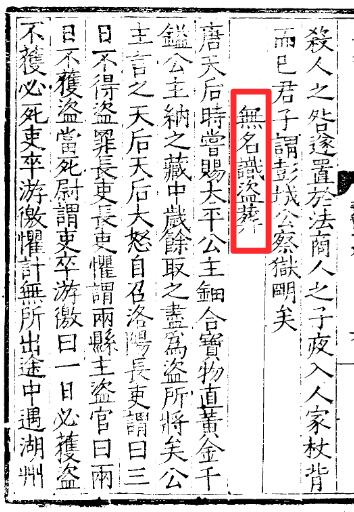 殺人之咎遂置於法商人之子夜入人家杖背
而已君子謂彭城公察獄明矣
無名識盜葬
唐天后時嘗賜太平公主鈿合寶物直黃金千
鎰公主納之藏中歲餘取之盡爲盜所將矣公
主言之天后天后大怒自召洛陽長吏謂曰三
日不得盜罪長吏長吏懼謂兩縣主盜官曰兩
日不獲盜當死尉謂吏卒游徼曰一日必獲盜
不獲必死吏卒游徼懼計無所出途中遇湖州